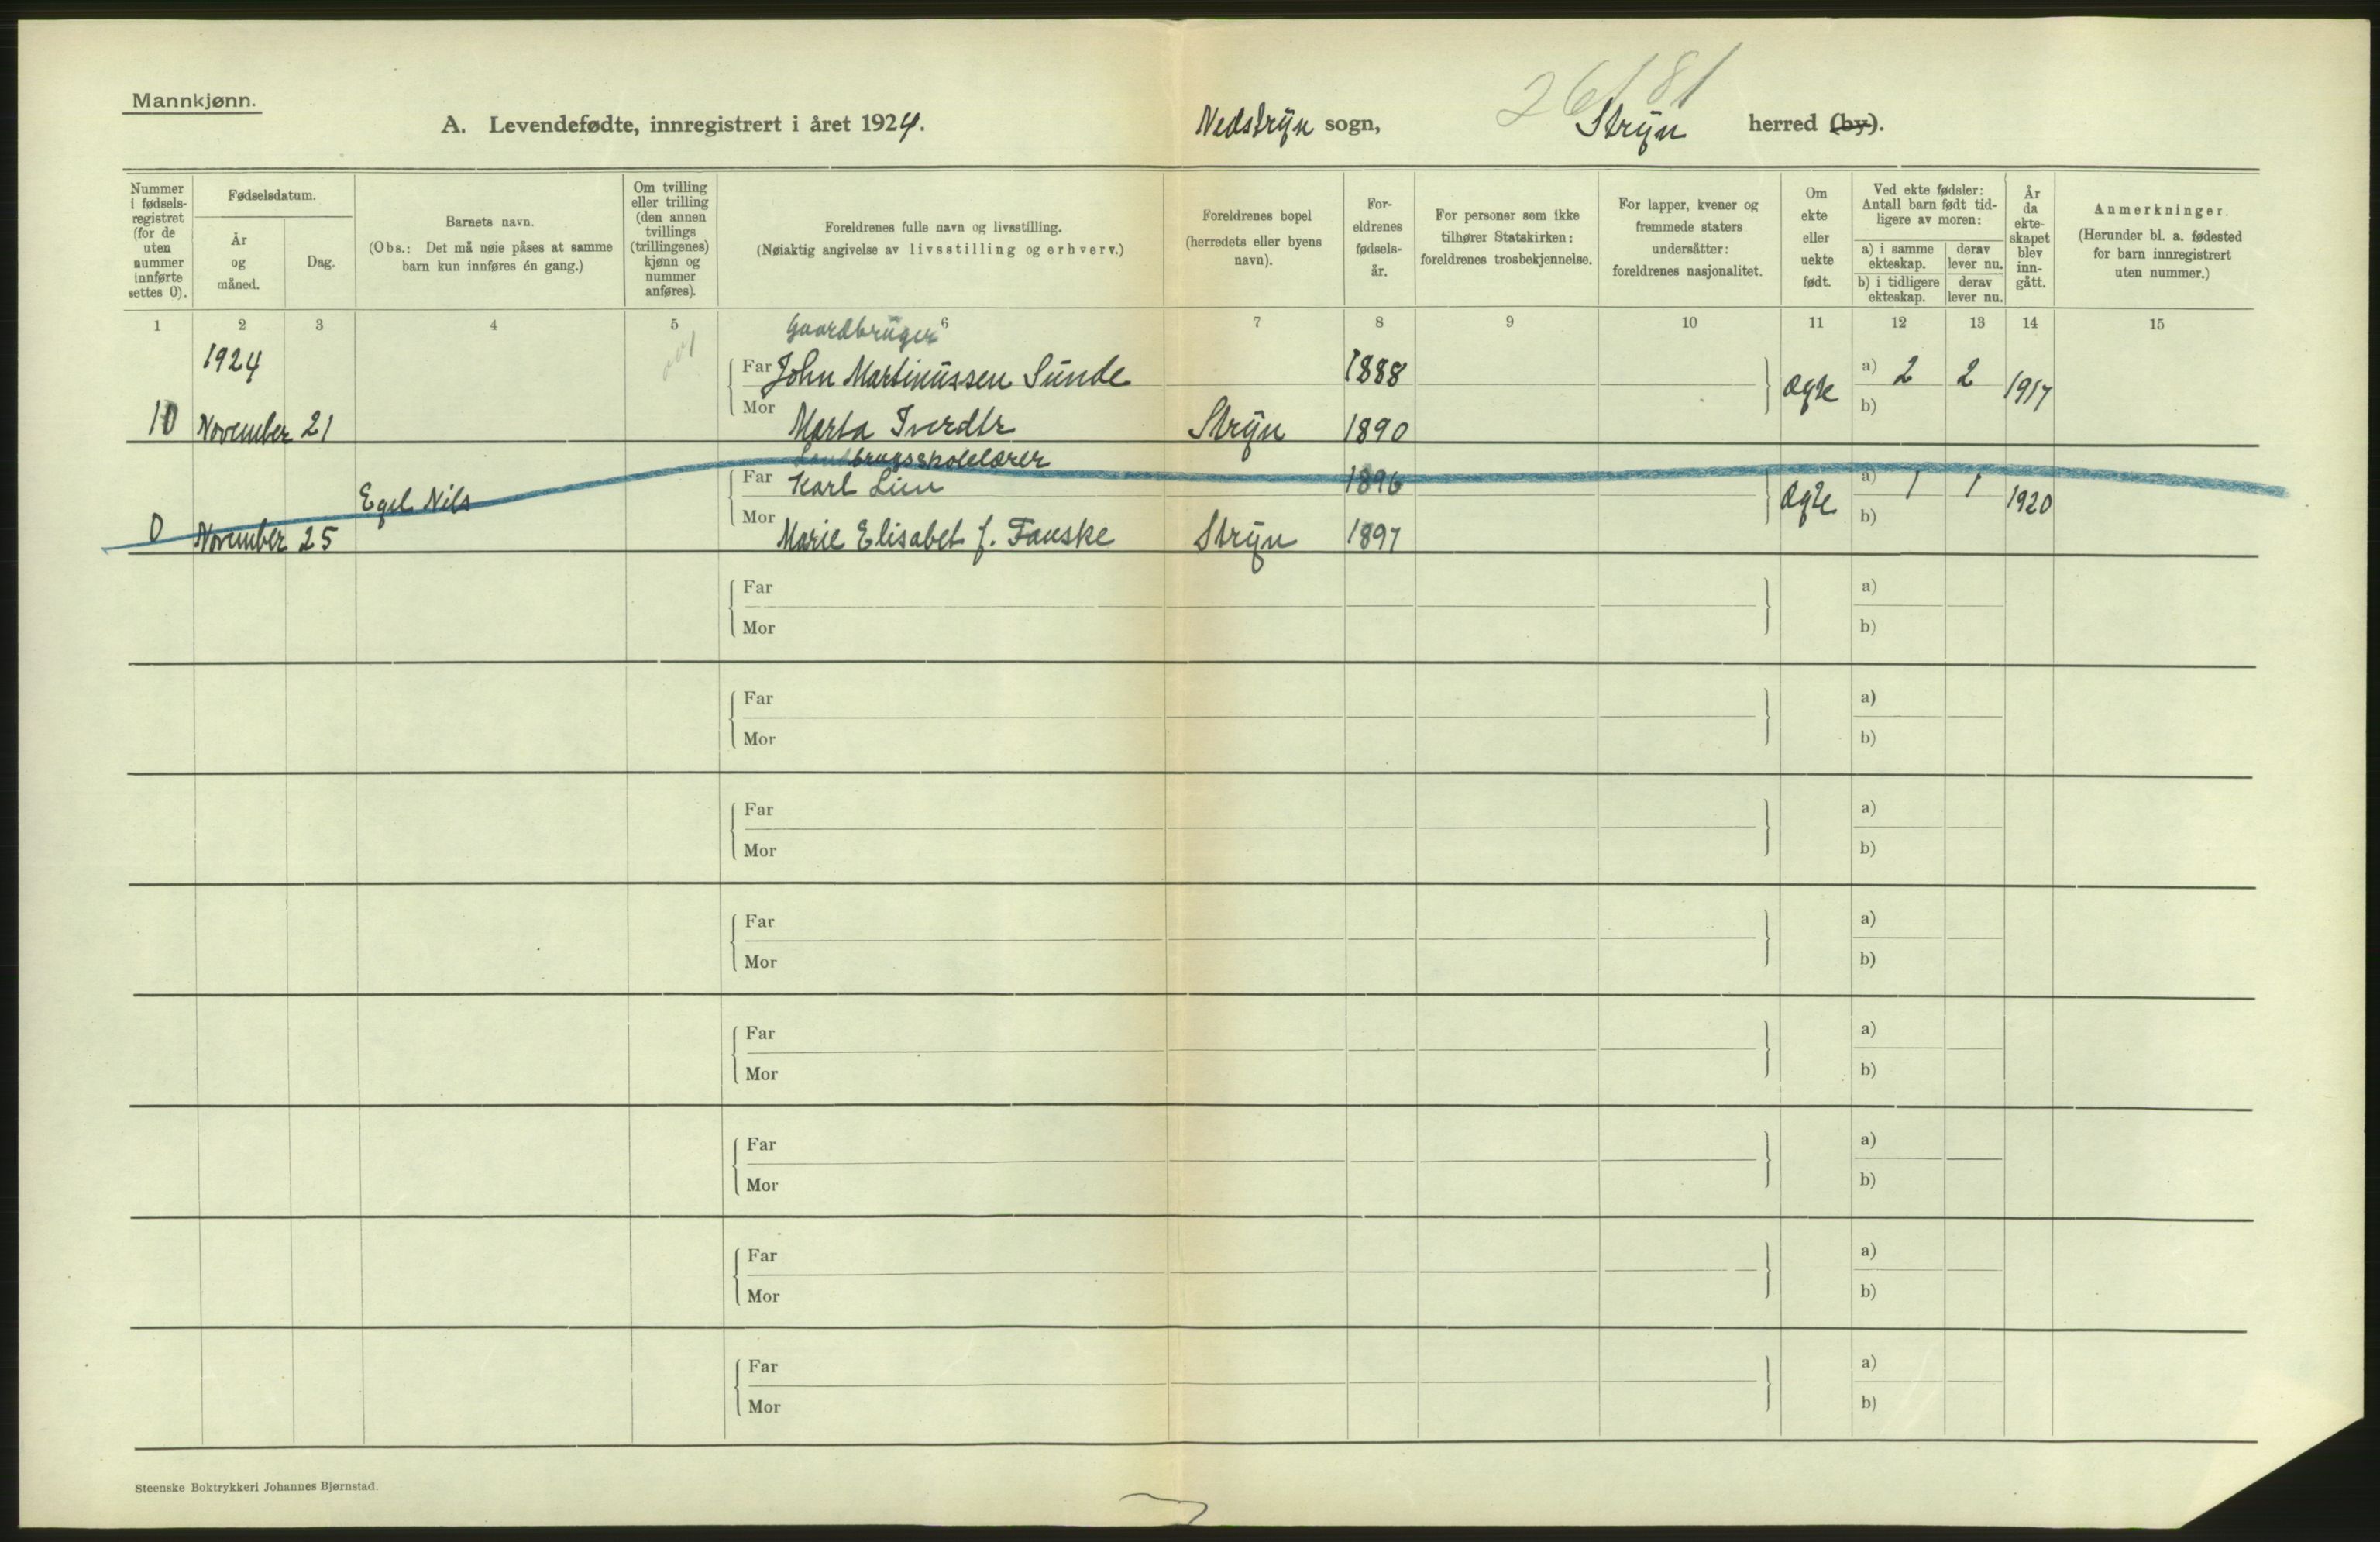 Mannkjønn.
26/81
A. Levendefødte, innregistrert i året 1924. Nedstryn sogn, Stryn herred (by).
Nummer i fødselsregistret (for de uten nummer innførte settes 0).
Fødselsdatum.
År og måned.
Dag.
Barnets navn.
(Obs.: Det må nøie påses at samme barn kun innføres én gang.)
Om tvilling eller trilling (den annen tvillings (trillingenes) kjønn og nummer anføres).
Foreldrenes fulle navn og livsstilling.
(Nøiaktig angivelse av livsstilling og erhverv.)
Foreldrenes bopel (herredets eller byens navn).
Foreldrenes fødselsår.
For personer som ikke tilhører Statskirken: foreldrenes trosbekjennelse.
For lapper, kvener og fremmede staters undersåtter: foreldrenes nasjonalitet.
Om ekte eller uekte født.
Ved ekte fødsler: Antall barn født tidligere av moren:
a) i samme ekteskap.
derav lever nu.
b) i tidligere ekteskap.
derav lever nu.
År da ekteskapet blev inngått.
Anmerkninger.
(Herunder bl. a. fødested for barn innregistrert uten nummer.)
1 2 3 4 5 6 7 8 9 10 11 12 13 14 15
Gaardbruger
1924 Far John Martinussen Sunde 1888 Ægte a) 2 2 1917
10 November 21 Mor Marta Iverdtr Stryn 1890 b)
Landbrugsskolelærer
Egil Nils Far Karl Lien 1896 Ægte a) 1 1 1920
0 November 25 Mor Marie Elisabet f. Fauske Stryn 1897 b)
Far a)
Mor b)
Far a)
Mor b)
Far a)
Mor b)
Far a)
Mor b)
Far a)
Mor b)
Far a)
Mor b)
Far a)
Mor b)
Far a)
Mor b)
Steenske Boktrykkeri Johannes Bjørnstad.